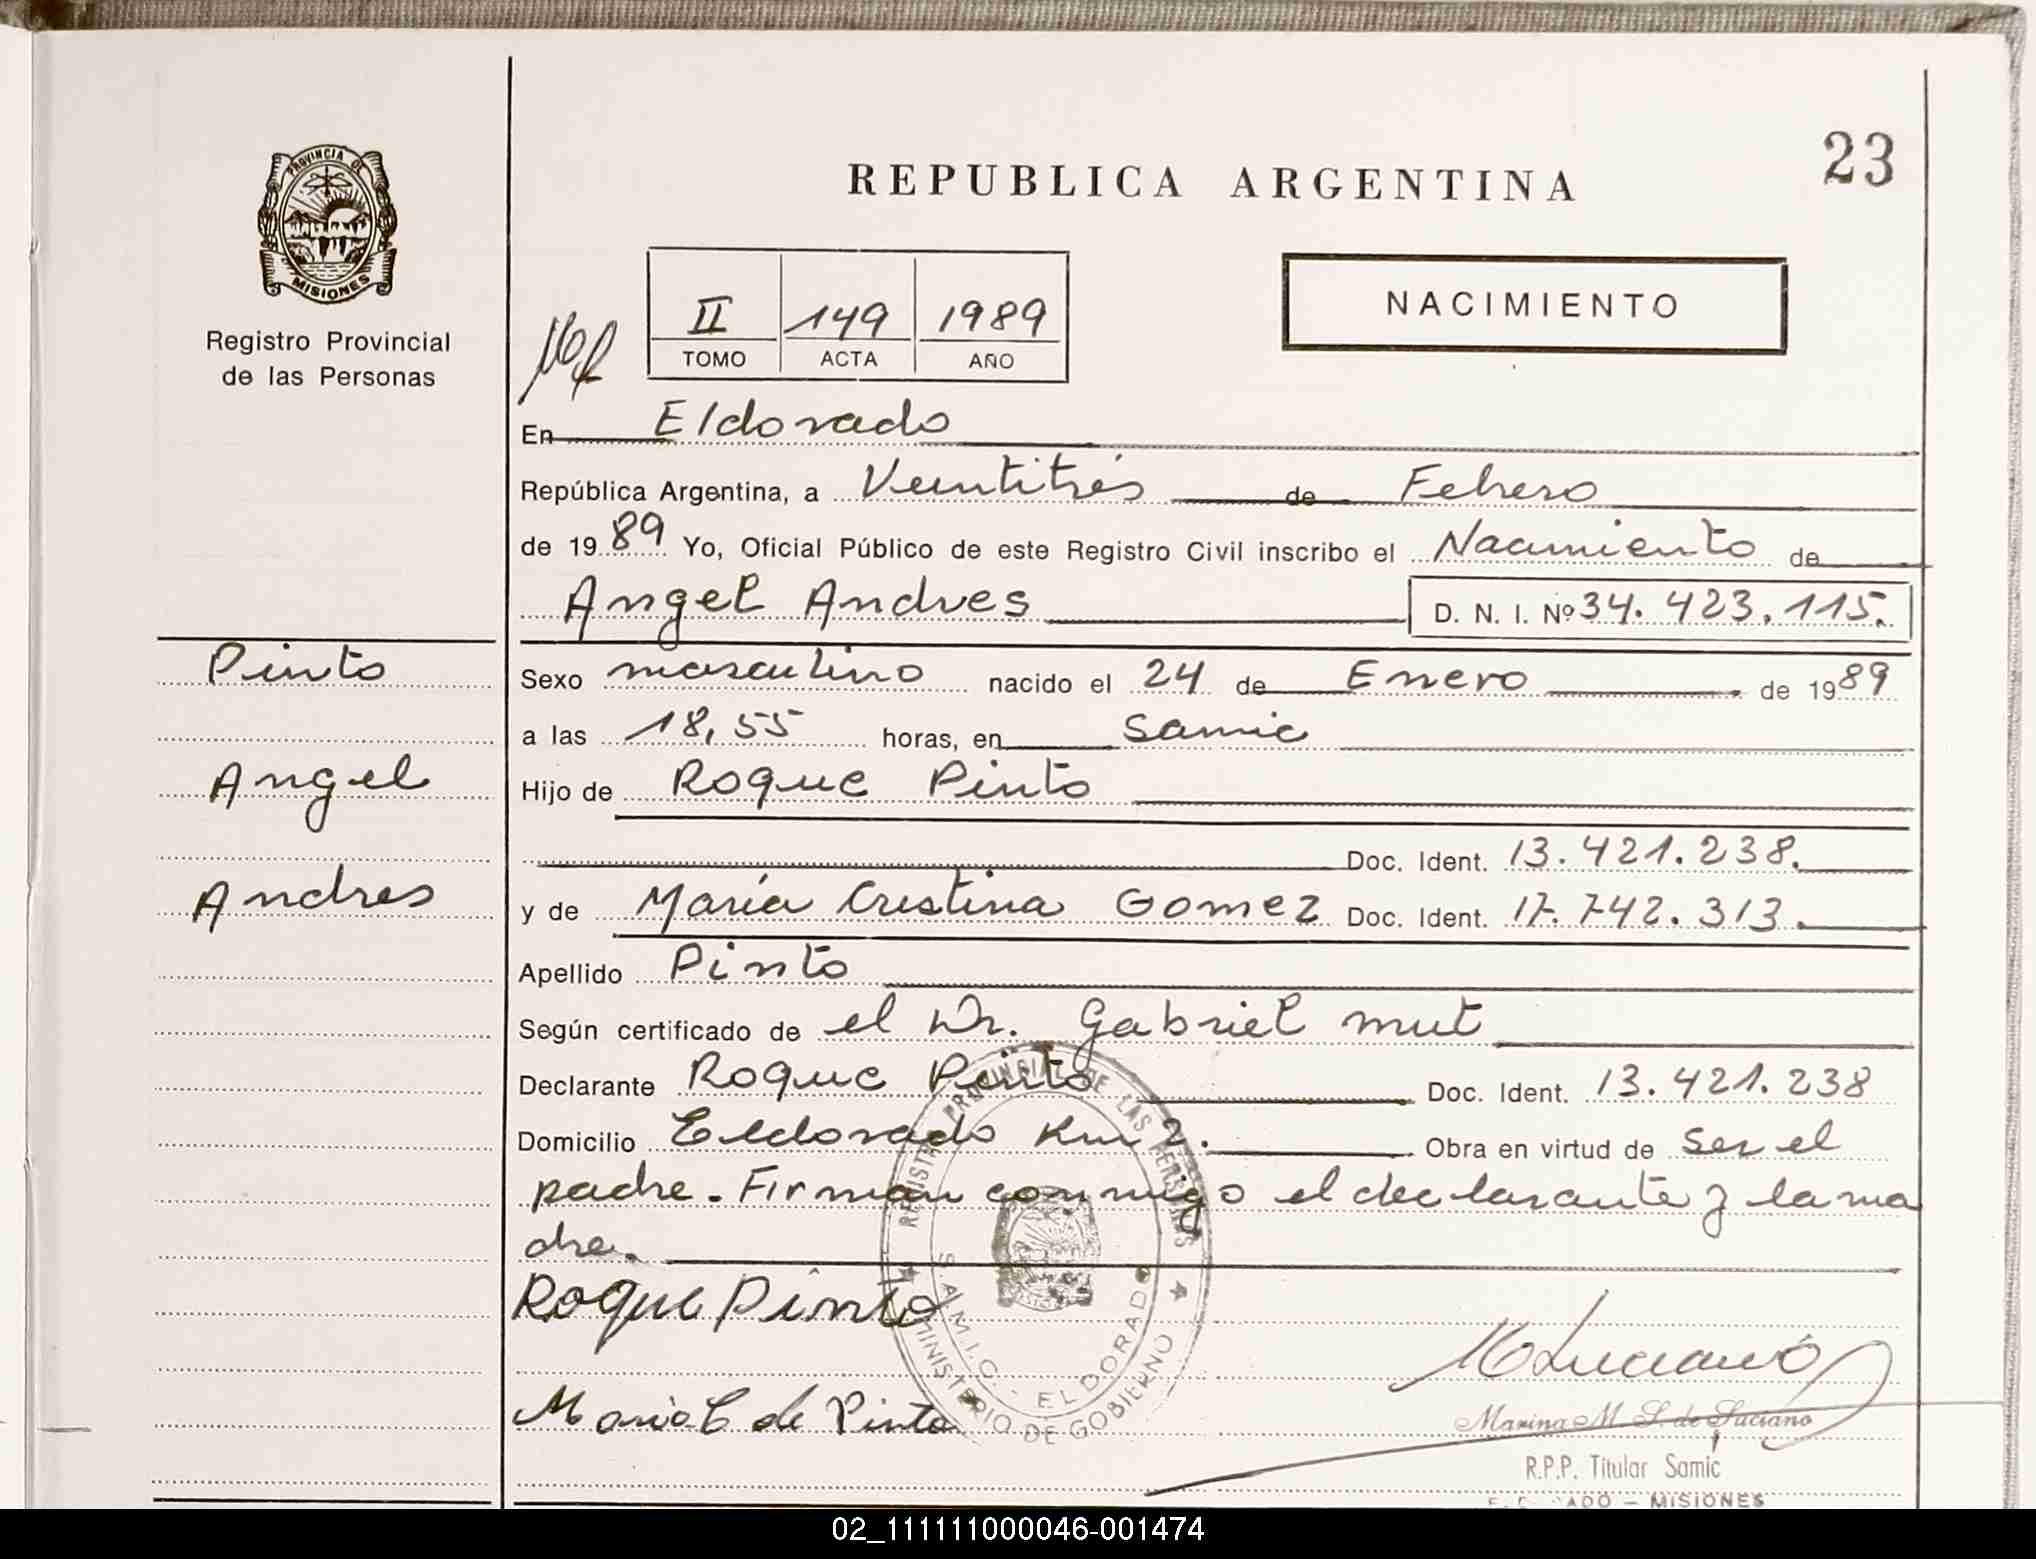 23
PROVINCIA DE
MISIONES
Registro Provincial
de las Personas
REPUBLICA ARGENTINA
II 149 1989
TOMO ACTA AÑO
NACIMIENTO
En Eldorado
República Argentina, a Veintitrés de Febrero
de 1989 Yo, Oficial Público de este Registro Civil inscribo el Nacimiento de
Angel Andres D. N. I. Nº 34.423.115.
Pinto
Angel
Andres
Sexo masculino nacido el 24 de Enero de 1989
a las 18,55 horas, en Samic
Hijo de Roque Pinto
Doc. Ident. 13.421.238.
y de María Cristina Gomez Doc. Ident. 17.742.313.
Apellido Pinto
Según certificado de el Dr. Gabriel mut
Declarante Roque Pinto Doc. Ident. 13.421.238
Domicilio Eldorado Km 2. Obra en virtud de ser el
padre. Firman conmigo el declarante y la ma
dre.
Roque Pinto
Maria C de Pinto
REGISTRO PROVINCIAL DE LAS PERSONAS
S.A.M.I.C. - ELDORADO
MINISTERIO DE GOBIERNO
MLuciano
Marina M. S. de Luciano
R.P.P. Titular Samic
MISIONES
02_111111000046-001474